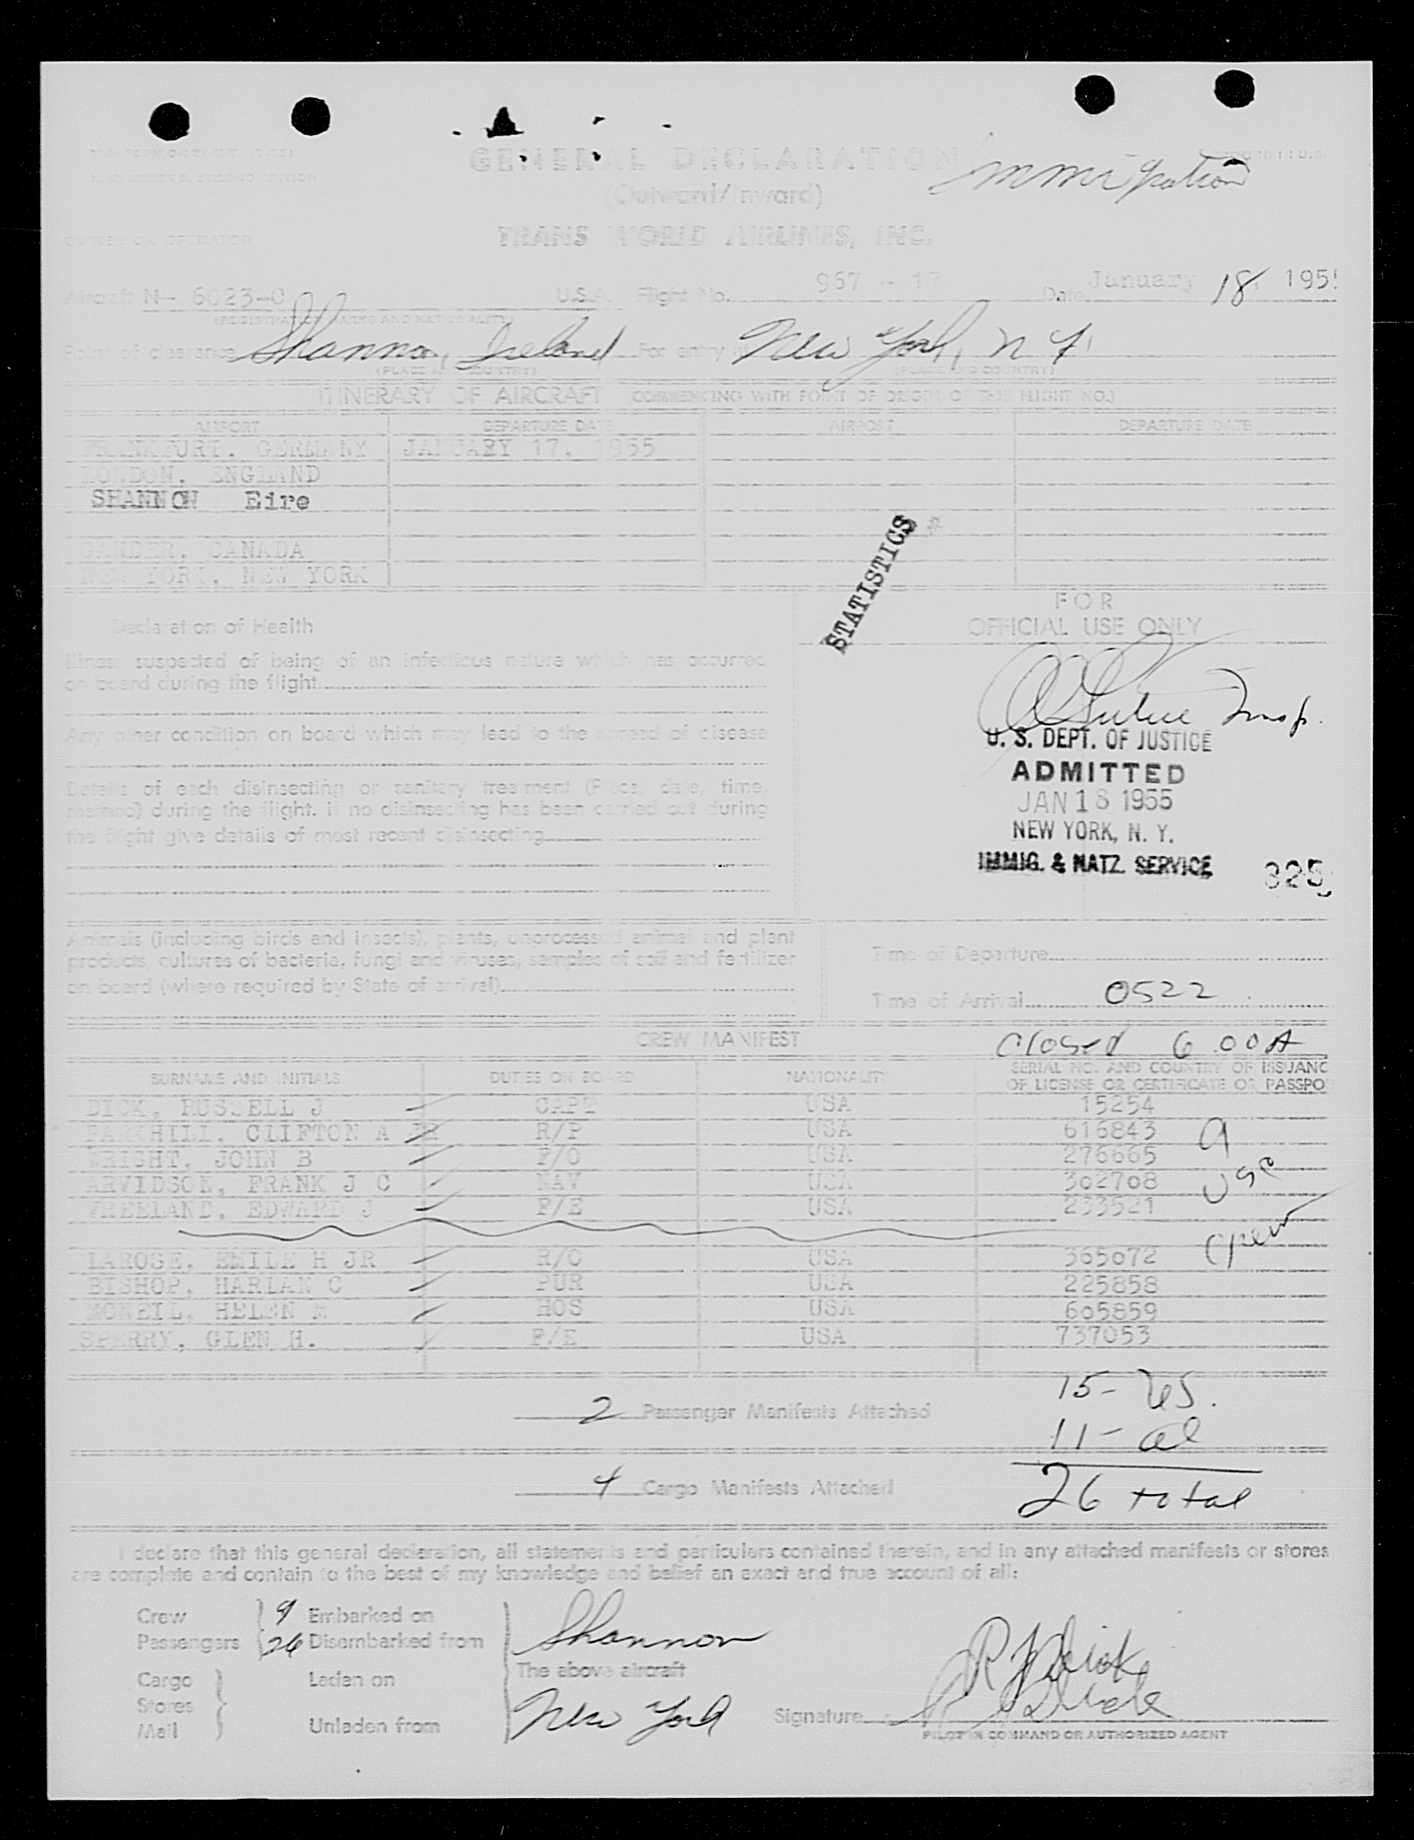 GENERAL DECLARATION
(Outward/Inward)
Immigration
OWNER OR OPERATOR
TRANS WORLD AIRLINES, INC.
Aircraft N- 6023-C U.S.A. Flight No. 967 - 17 Date January 18, 195
(REGISTRATION MARKS AND NATIONALITY)
Point of clearance Shannon, Ireland For entry New York, N Y
(PLACE AND COUNTRY) (PLACE AND COUNTRY)
ITINERARY OF AIRCRAFT COMMENCING WITH POINT OF ORIGIN OF THIS FLIGHT NO.)
AIRPORT DEPARTURE DATE AIRPORT DEPARTURE DATE
FRANKFURT, GERMANY JANUARY 17, 1955
LONDON, ENGLAND
SHANNON Eire
GANDER, CANADA
NEW YORK, NEW YORK
STATISTICS
FOR
OFFICIAL USE ONLY
Declaration of Health
Illness suspected of being of an infectious nature which has occurred
on board during the flight
Any other condition on board which may lead to the spread of disease
Details of each disinsecting or sanitary treatment (Place, date, time,
method) during the flight. If no disinsecting has been carried out during
the flight give details of most recent disinsecting
Insp.
U. S. DEPT. OF JUSTICE
ADMITTED
JAN 18 1955
NEW YORK, N. Y.
IMMIG. & NATZ. SERVICE 325
Animals (including birds and insects), plants, unprocessed animal and plant
products, cultures of bacteria, fungi and viruses, samples of soil and fertilizer
on board (where required by State of arrival)
Time of Departure
Time of Arrival 0522
CREW MANIFEST
Closed 6 00 A
SURNAME AND INITIALS DUTIES ON BOARD NATIONALITY SERIAL NO. AND COUNTRY OF ISSUANC
OF LICENSE OR CERTIFICATE OR PASSPO
DICK, RUSSELL J CAPT USA 15254
PARKHILL, CLIFTON A JR R/P USA 616843 9
WRIGHT, JOHN B F/O USA 276665
ARVIDSON, FRANK J C NAV USA 302708 USA
VREELAND, EDWARD J F/E USA 233521
Crew
LAROSE, EMILE H JR R/O USA 365072
BISHOP, HARLAN C PUR USA 225858
MCNEIL, HELEN M HOS USA 605859
SPERRY, GLEN H. F/E USA 737053
15- US.
2 Passenger Manifests Attached
11- al
4 Cargo Manifests Attached
26 total
I declare that this general declaration, all statements and particulars contained therein, and in any attached manifests or stores
are complete and contain to the best of my knowledge and belief an exact and true account of all:
Crew 9 Embarked on
Passengers 26 Disembarked from Shannon
Cargo Laden on The above aircraft
Stores
Mail Unladen from New York
R J Dick
Signature
PILOT IN COMMAND OR AUTHORIZED AGENT